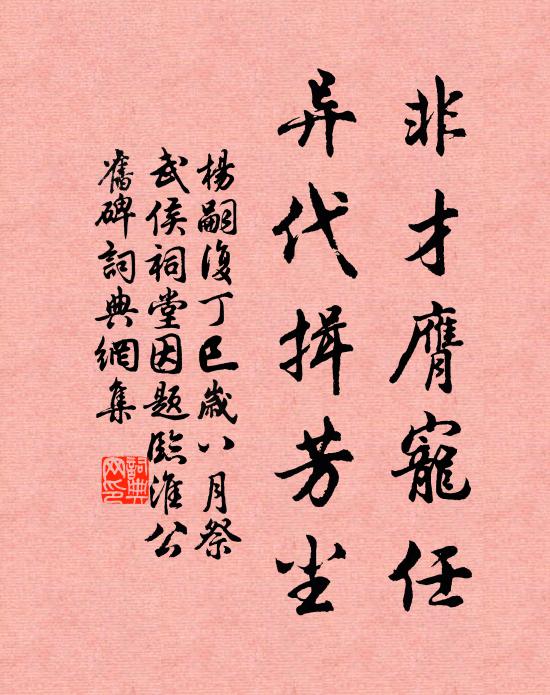 非才膺寵任
异代揖芳尘
楊嗣復丁巳歲八月祭
武侯祠堂因題臨淮公
舊碑詞典網集
詞典
网印